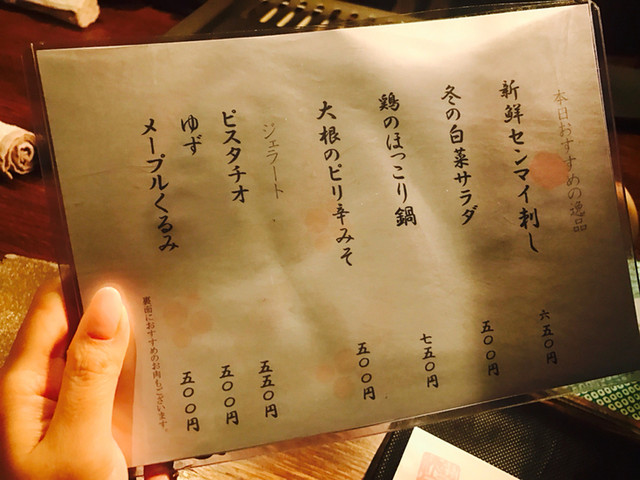 本日おすすめの逸品
新鮮センマイ刺し 六五〇円
冬の白菜サラダ 五〇〇円
鶏のほっこり鍋 七五〇円
大根のピリ辛みそ 五〇〇円
ジェラート
ピスタチオ 五五〇円
ゆず 五〇〇円
メープルくるみ 五〇〇円
裏面におすすめのお肉もございます。